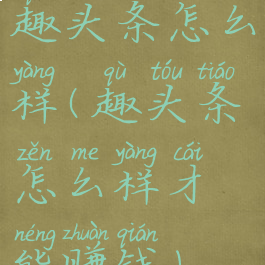 趣头条怎么
yàng qù tóu tiáo
样(趣头条
zěn me yàng cái
怎么样才
néng zhuàn qián
能赚钱)